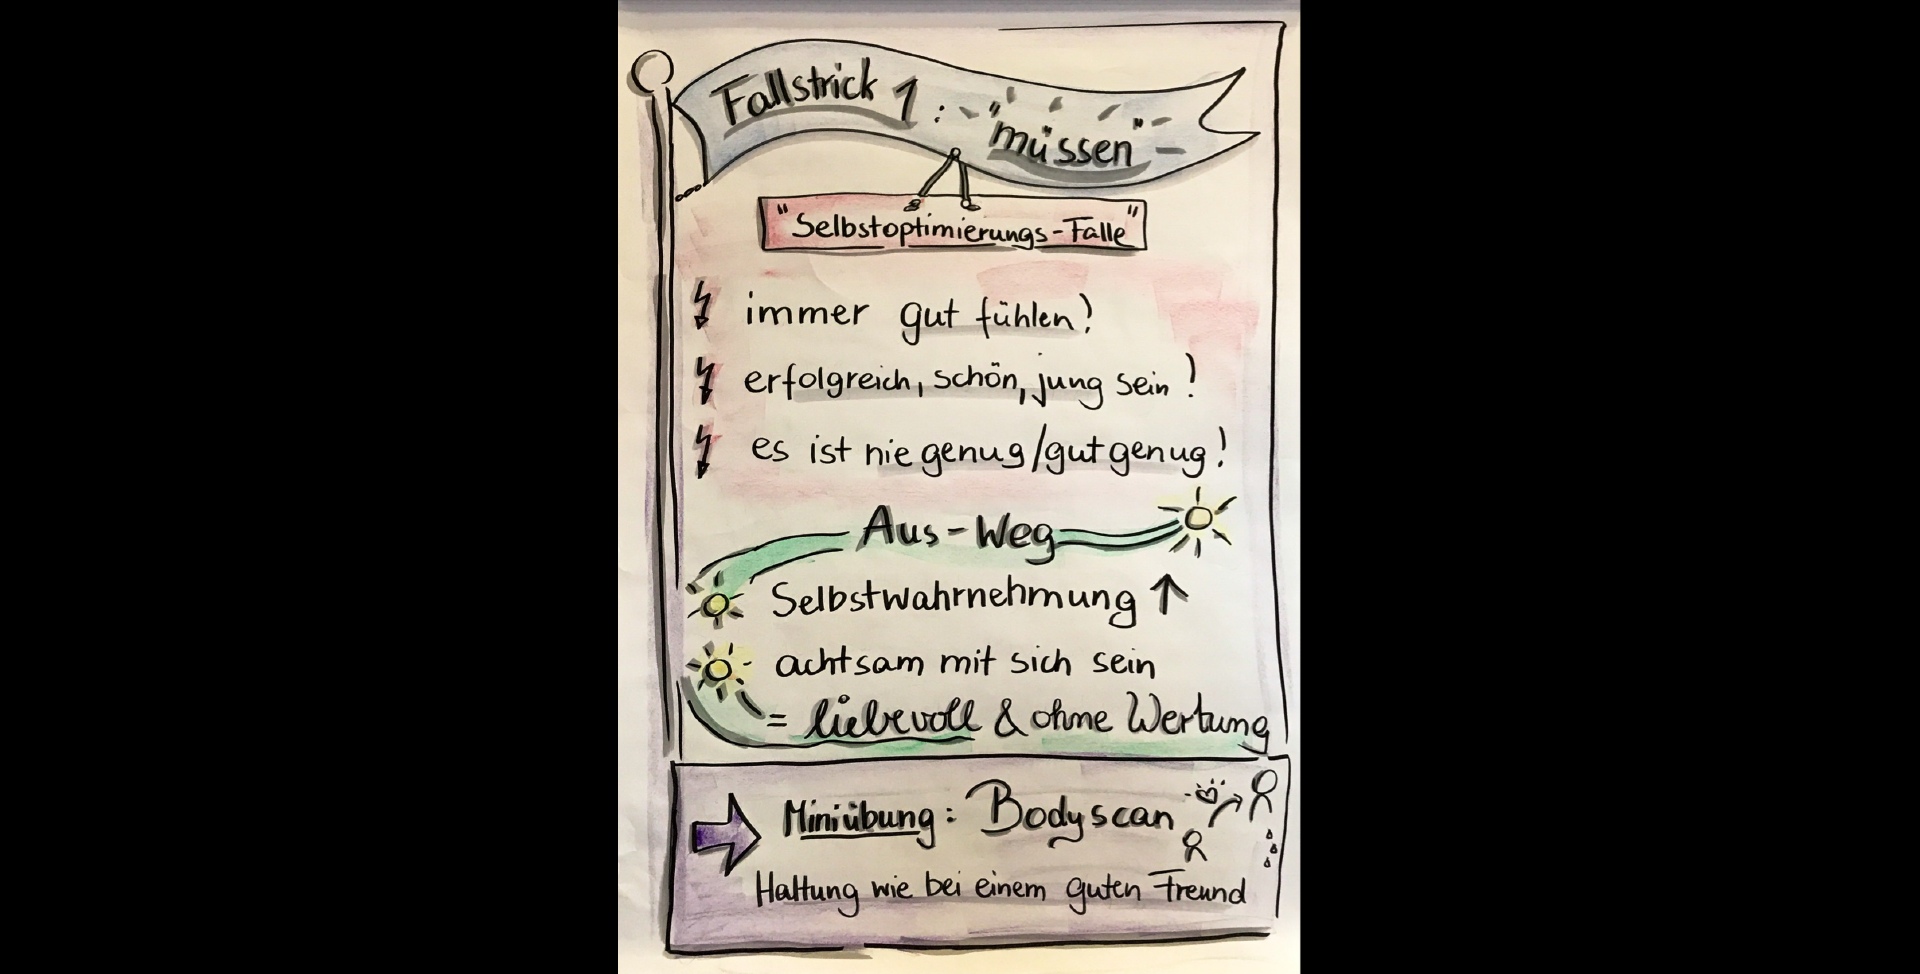 Fallstrick 1: "müssen"
"Selbstoptimierungs-Falle"
immer gut fühlen!
erfolgreich, schön, jung sein!
es ist nie genug/gut genug!
Aus-Weg
Selbstwahrnehmung ↑
achtsam mit sich sein
= liebevoll & ohne Wertung
Miniübung: Bodyscan
Haltung wie bei einem guten Freund